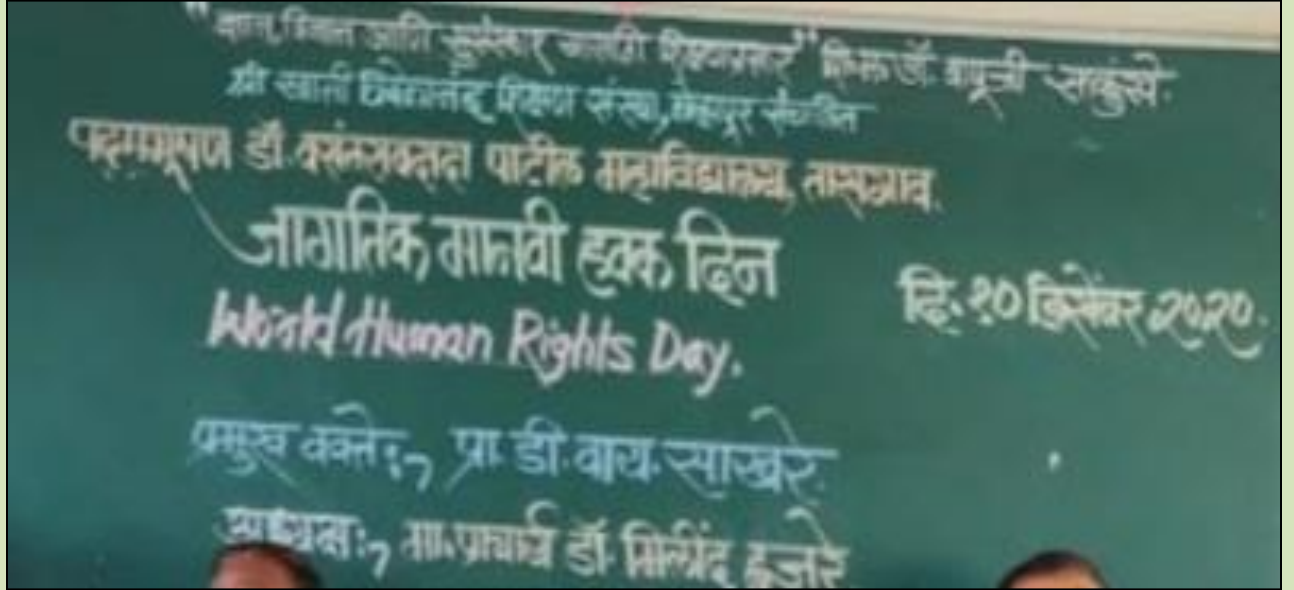 "ज्ञान, विज्ञान आणि सुसंस्कार यासाठी शिक्षणप्रसार" शिक्षणमहर्षी डॉ. बापूजी साळुंखे.
श्री स्वामी विवेकानंद शिक्षण संस्था, कोल्हापूर संचलित
पद्मभूषण डॉ. वसंतरावदादा पाटील महाविद्यालय, तासगाव.
जागतिक मानवी हक्क दिन
दि. १० डिसेंबर २०२०.
World Human Rights Day.
प्रमुख वक्ते :- प्रा. डी. वाय. साखरे.
अध्यक्ष :- मा. प्राचार्य डॉ. मिलींद हुजरे